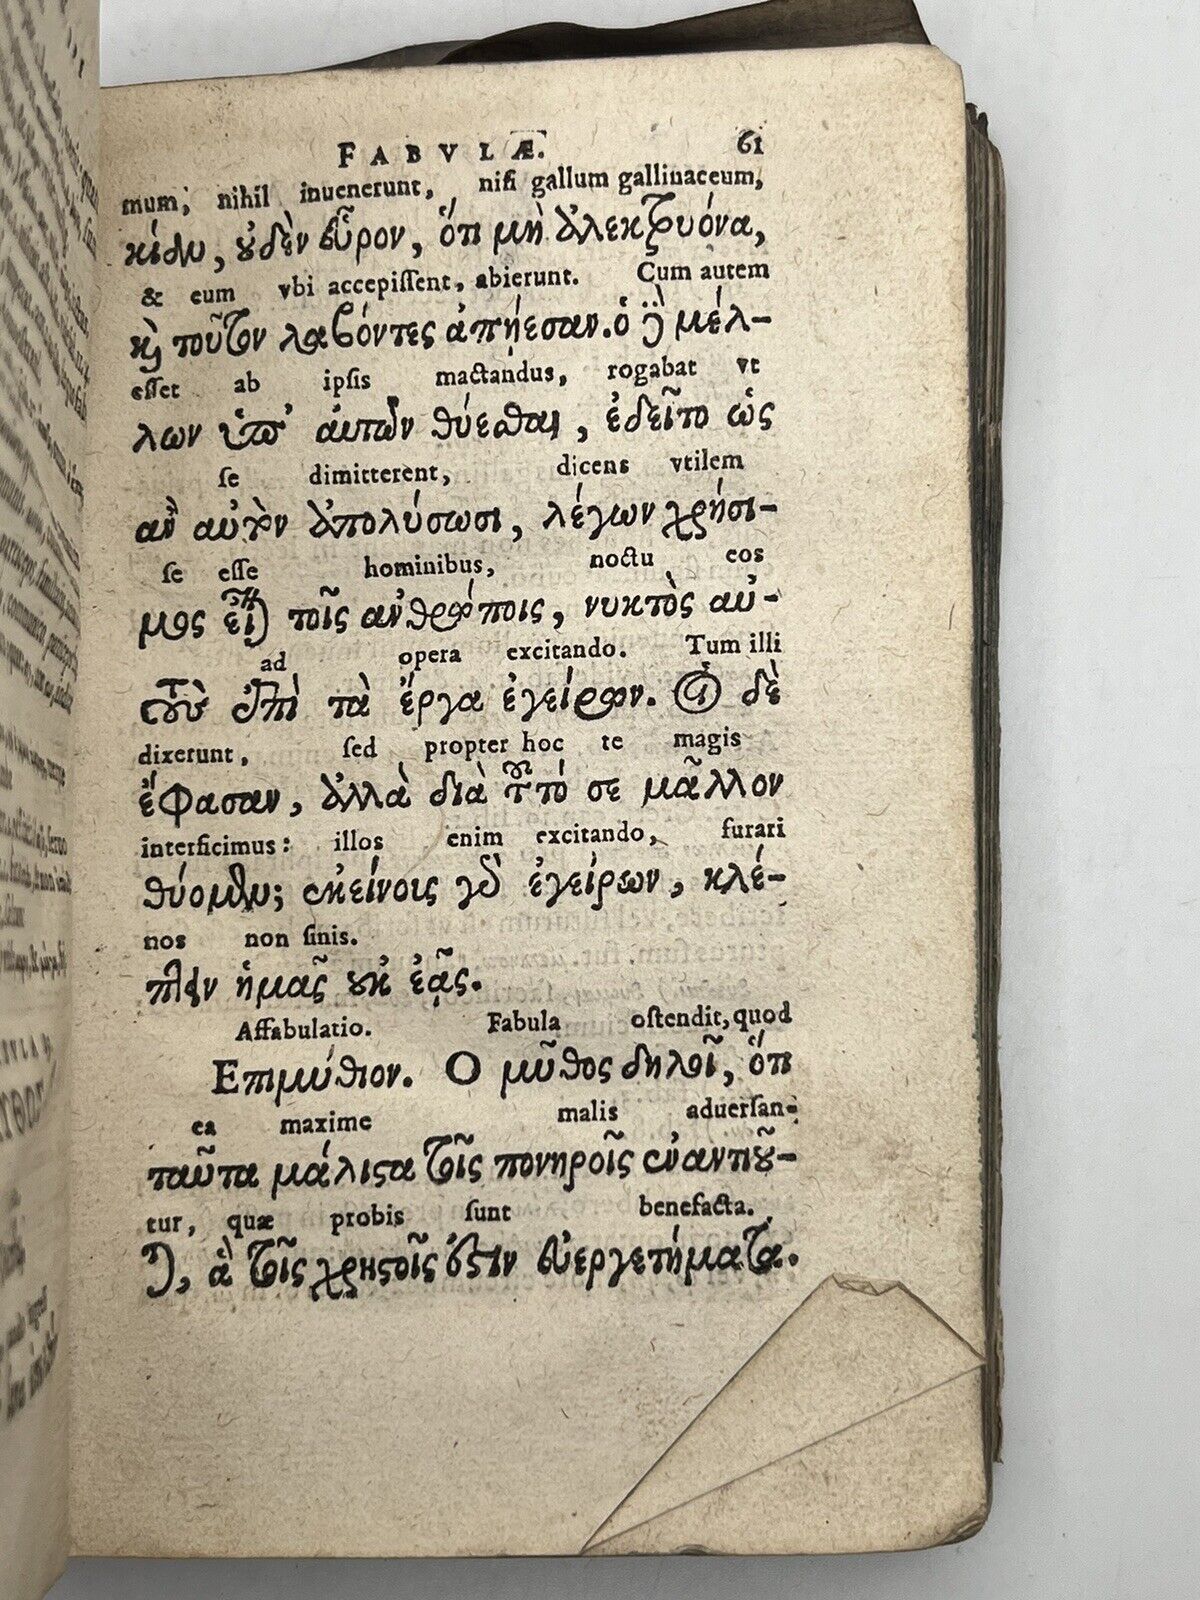 FABVLÆ. 61
mum, nihil inuenerunt, nisi gallum gallinaceum,
κίαν, οὐδὲν εὗρον, ὅτι μὴ ἀλεκτρυόνα,
& eum vbi accepissent, abierunt. Cum autem
καὶ τοῦτον λαβόντες ἀπῄεσαν. ὁ δὲ μέλ-
esset ab ipsis mactandus, rogabat vt
λων ὑπ' αὐτῶν θύεσθαι, ἐδεῖτο ὡς
se dimitterent, dicens vtilem
ἂν αὐτὸν ἀπολύσωσι, λέγων χρήσι-
se esse hominibus, noctu eos
μος εἶναι τοῖς ἀνθρώποις, νυκτὸς αὐ-
ad opera excitando. Tum illi
τοὺς ἐπὶ τὰ ἔργα ἐγείρων. Οἱ δὲ
dixerunt, sed propter hoc te magis
ἔφασαν, ἀλλὰ διὰ τοῦτό σε μᾶλλον
interficimus: illos enim excitando, furari
θύομεν; ἐκείνοις γὰρ ἐγείρων, κλέ-
nos non sinis.
πτειν ἡμᾶς οὐκ ἐᾷς.
Affabulatio. Fabula ostendit, quod
Επιμύθιον. Ο μῦθος δηλοῖ, ὅτι
ea maxime malis aduersan-
ταῦτα μάλιστα τοῖς πονηροῖς ἐναντιοῦ-
tur, quæ probis sunt benefacta.
ται, ἃ τοῖς χρηστοῖς ἐστιν εὐεργετήματα.